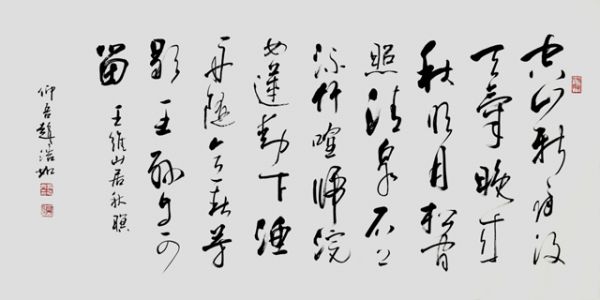 空山新雨後
天氣晚來
秋明月松間
照清泉石上
流竹喧歸浣
女蓮動下漁
舟随意春芳
歇王孫自可
留
王維山居秋暝
仰吾趙浩如